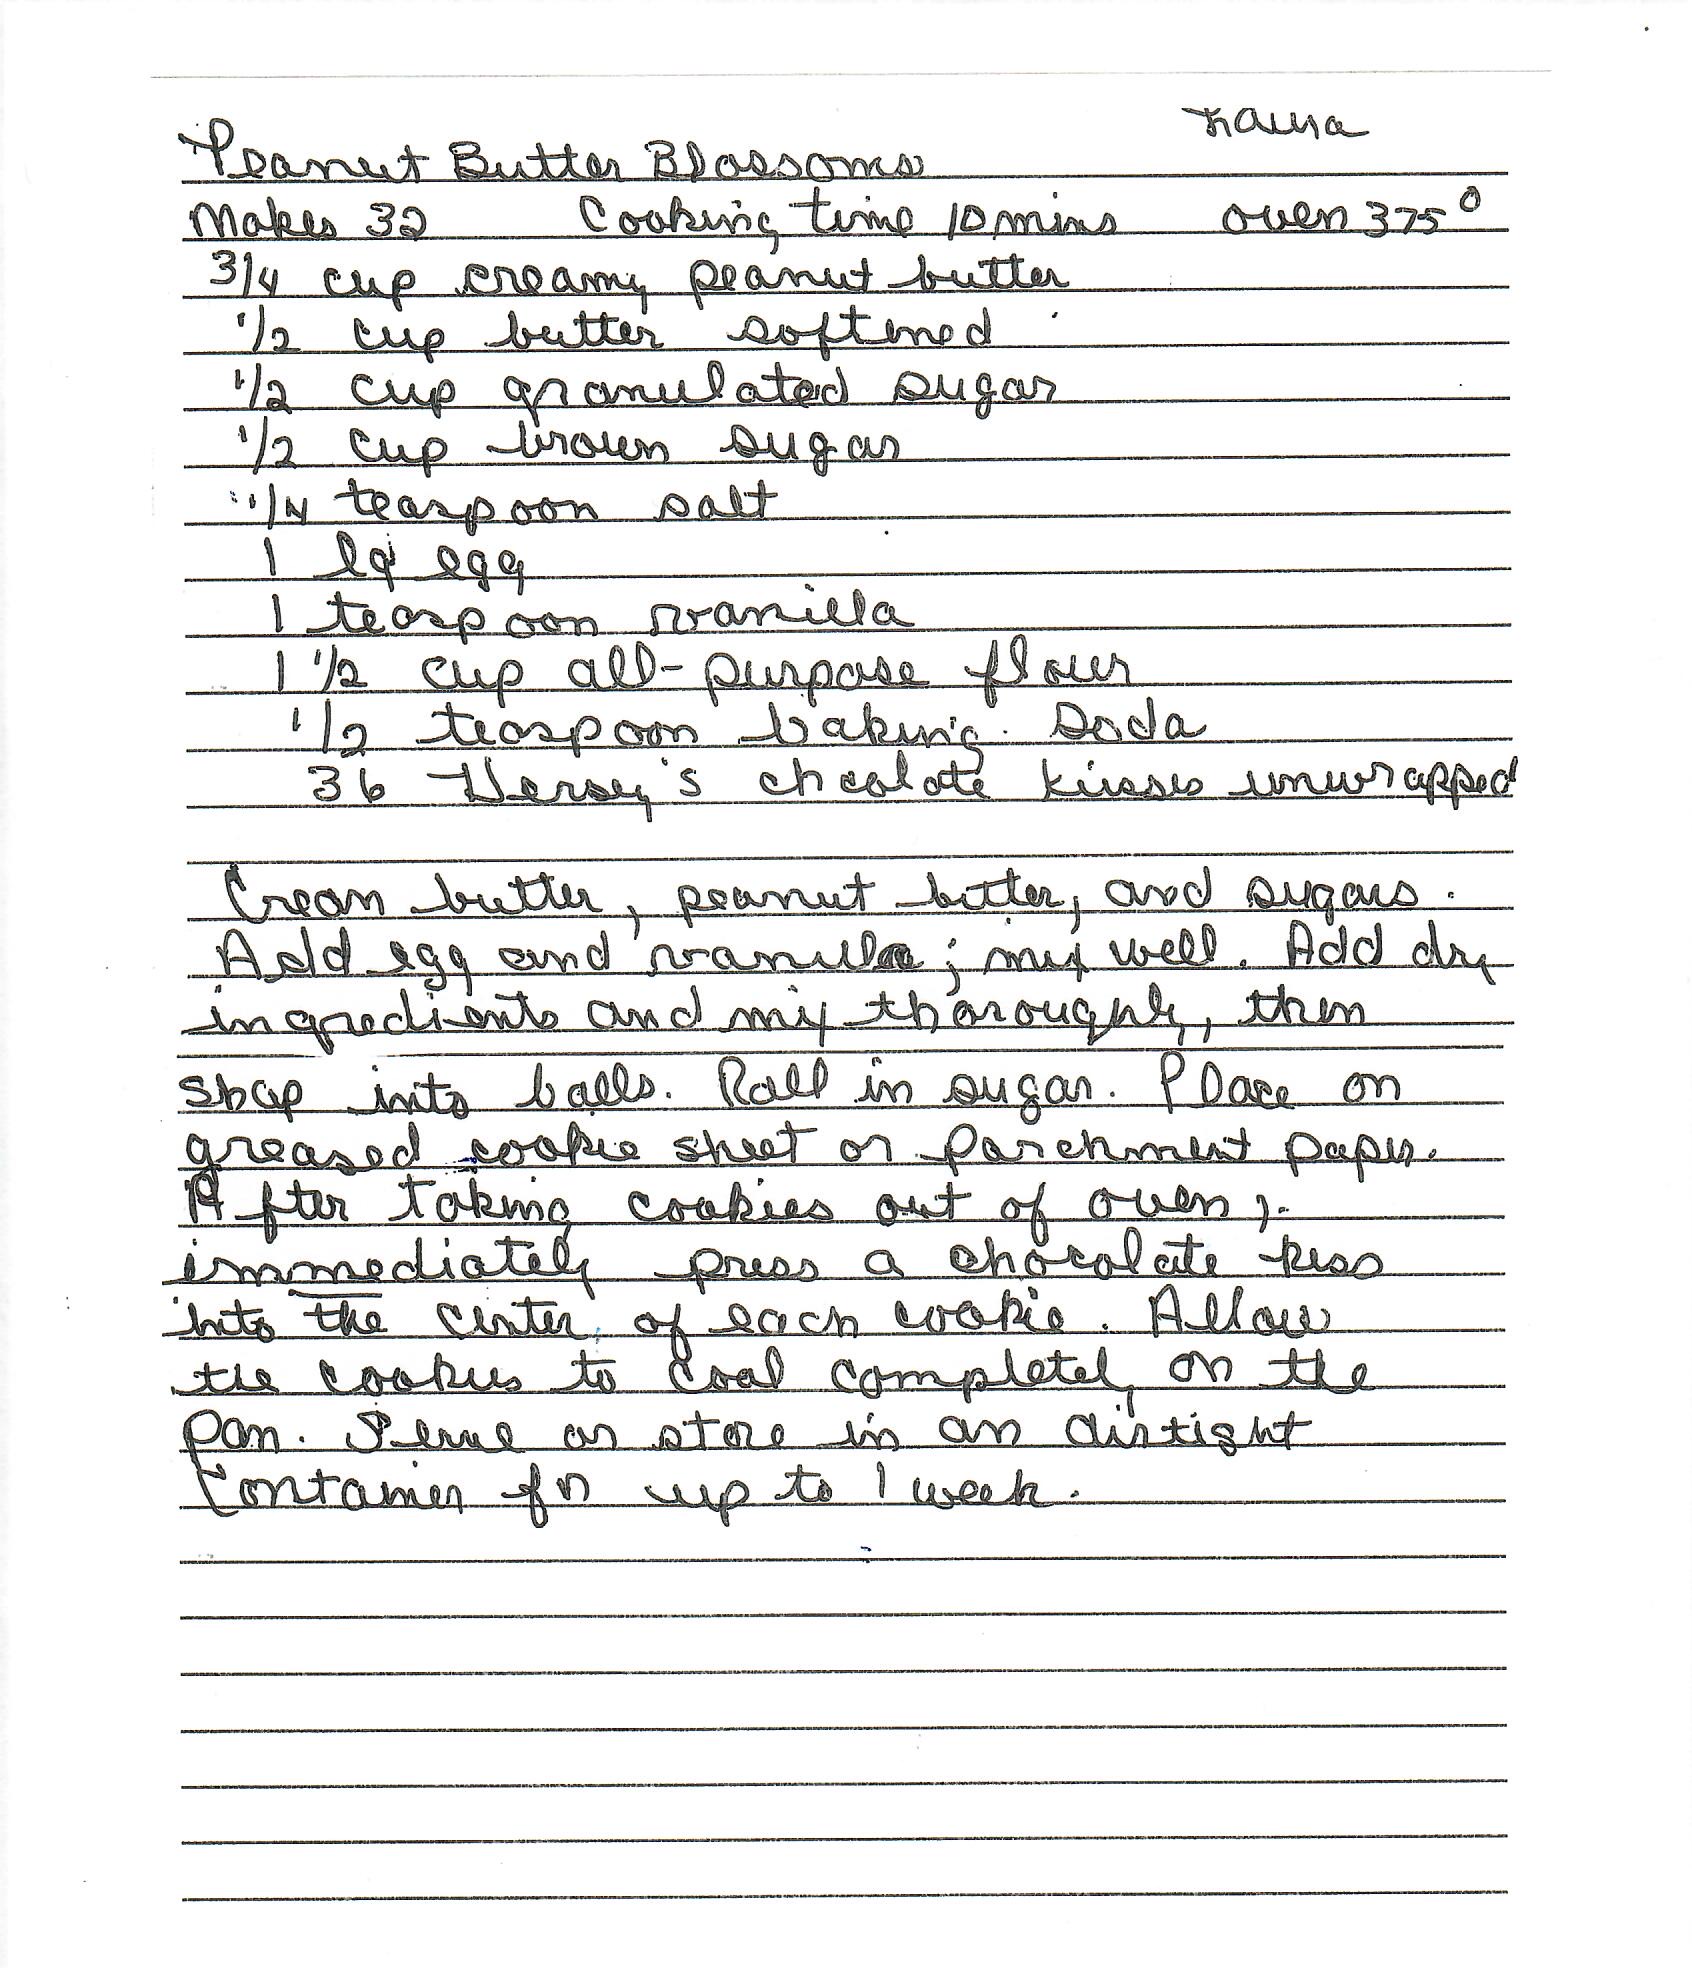 Laura
Peanut Butter Blossoms
Makes 32 Cooking time 10 mins oven 375°
3/4 cup creamy peanut butter
1/2 cup butter softened
1/2 cup granulated sugar
1/2 cup brown sugar
1/4 teaspoon salt
1 lg egg
1 teaspoon vanilla
1 1/2 cup all-purpose flour
1/2 teaspoon baking soda
36 Hersey's chcolate kisses unwrapped
Cream butter, peanut butter, and sugars.
Add egg and vanilla; mix well. Add dry
ingredients and mix thoroughly, then
shap into balls. Roll in sugar. Place on
greased cookie sheet or parchment paper.
After taking cookies out of oven,
immediately press a chocolate kiss
into the center of each cookie. Allow
the cookies to cool completely on the
pan. Serve or store in an airtight
container for up to 1 week.